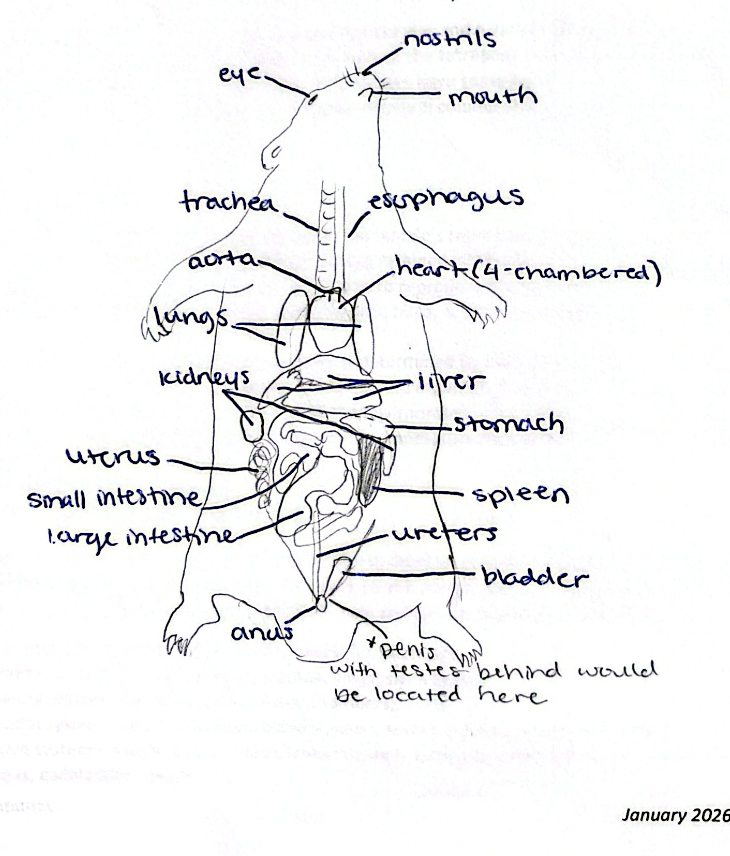 nostrils
eye
mouth
trachea
esophagus
aorta
heart (4-chambered)
lungs
kidneys
liver
stomach
uterus
small intestine
spleen
large intestine
ureters
bladder
anus
*penis
with testes behind would
be located here
January 2026